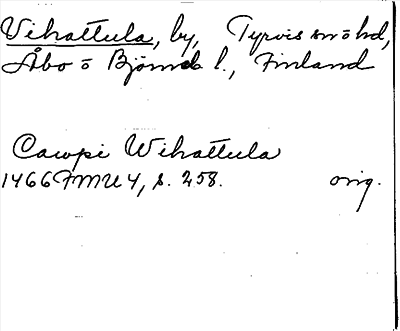 Vihattula, by, Tyrvis sn o hd,
Åbo o Björneb l., Finland
Cawpi Wihattula
1466 FMU 4, s. 258. orig.